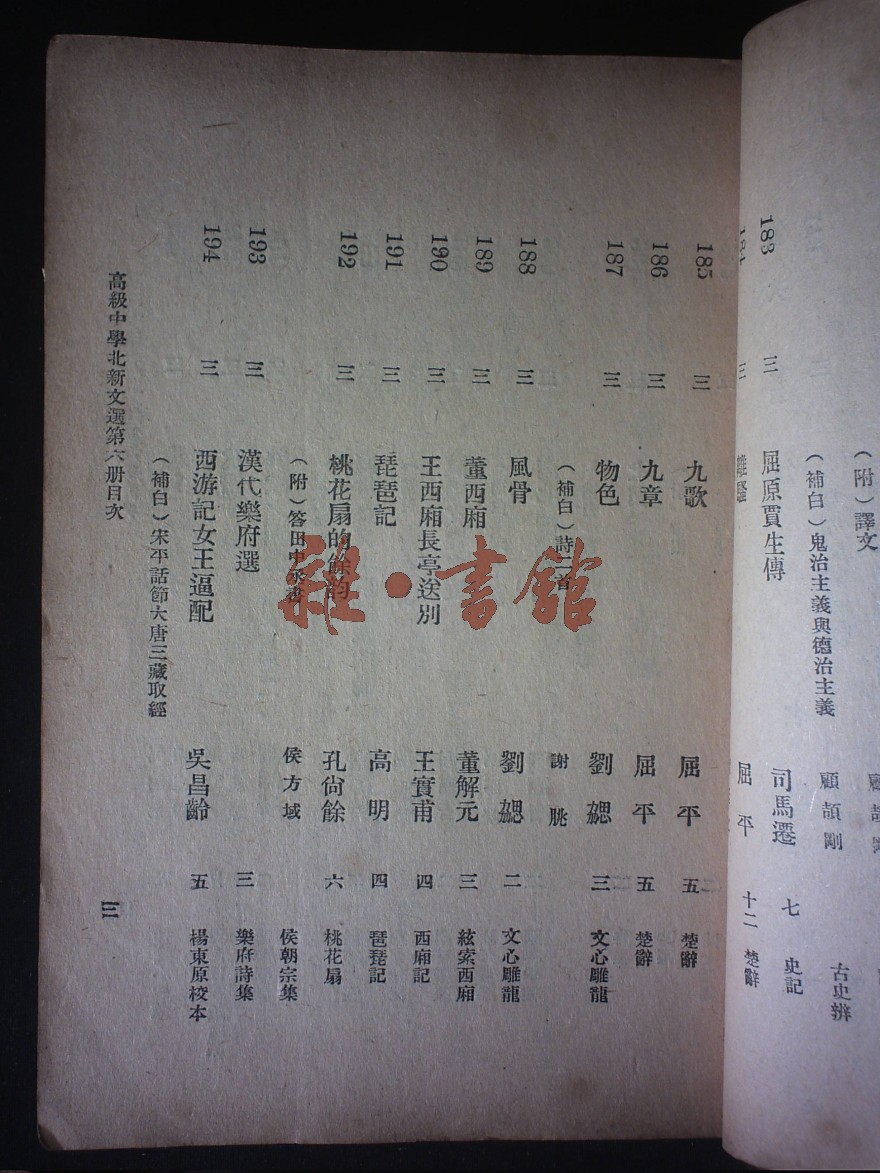 （附）譯文
（補白）鬼治主義與德治主義 顧頡剛 古史辨
183 三 屈原賈生傳 司馬遷 七 史記
184 三 離騷 屈平 十二 楚辭
185 三 九歌 屈平 五 楚辭
186 三 九章 屈平 五 楚辭
187 三 物色 劉勰 三 文心雕龍
（補白）詩二首 謝朓
188 三 風骨 劉勰 二 文心雕龍
189 三 董西廂 董解元 三 絃索西廂
190 三 王西廂長亭送別 王實甫 四 西廂記
191 三 琵琶記 高明 四 琵琶記
192 三 桃花扇的餘韵 孔尙餘 六 桃花扇
（附）答田中丞書 侯方域 侯朝宗集
193 三 漢代樂府選 三 樂府詩集
194 三 西游記女王逼配 吳昌齡 五 楊東原校本
（補白）宋平話節大唐三藏取經
高級中學北新文選第六册目次 三
雜·書館